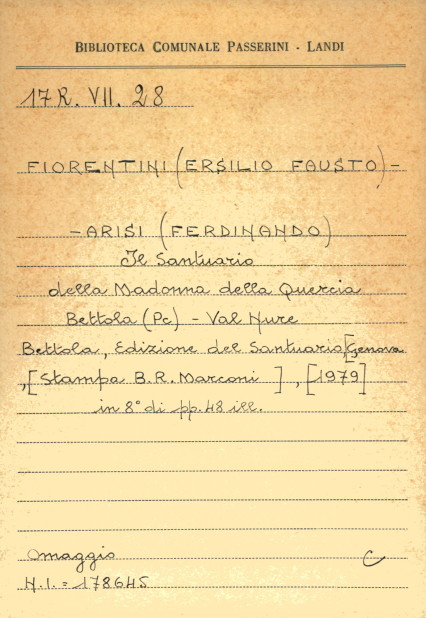 BIBLIOTECA COMUNALE PASSERINI - LANDI
17R. VII. 28
FIORENTINI (ERSILIO FAUSTO) -
- ARISI (FERDINANDO)
Il Santuario
della Madonna della Quercia
Bettola (Pc) - Val Nure
Bettola, Edizione del Santuario, [Genova
, [Stampa B.R. Marconi ] , [1979]
in 8° di pp. 48 ill.
Omaggio C
N.I. = 178645